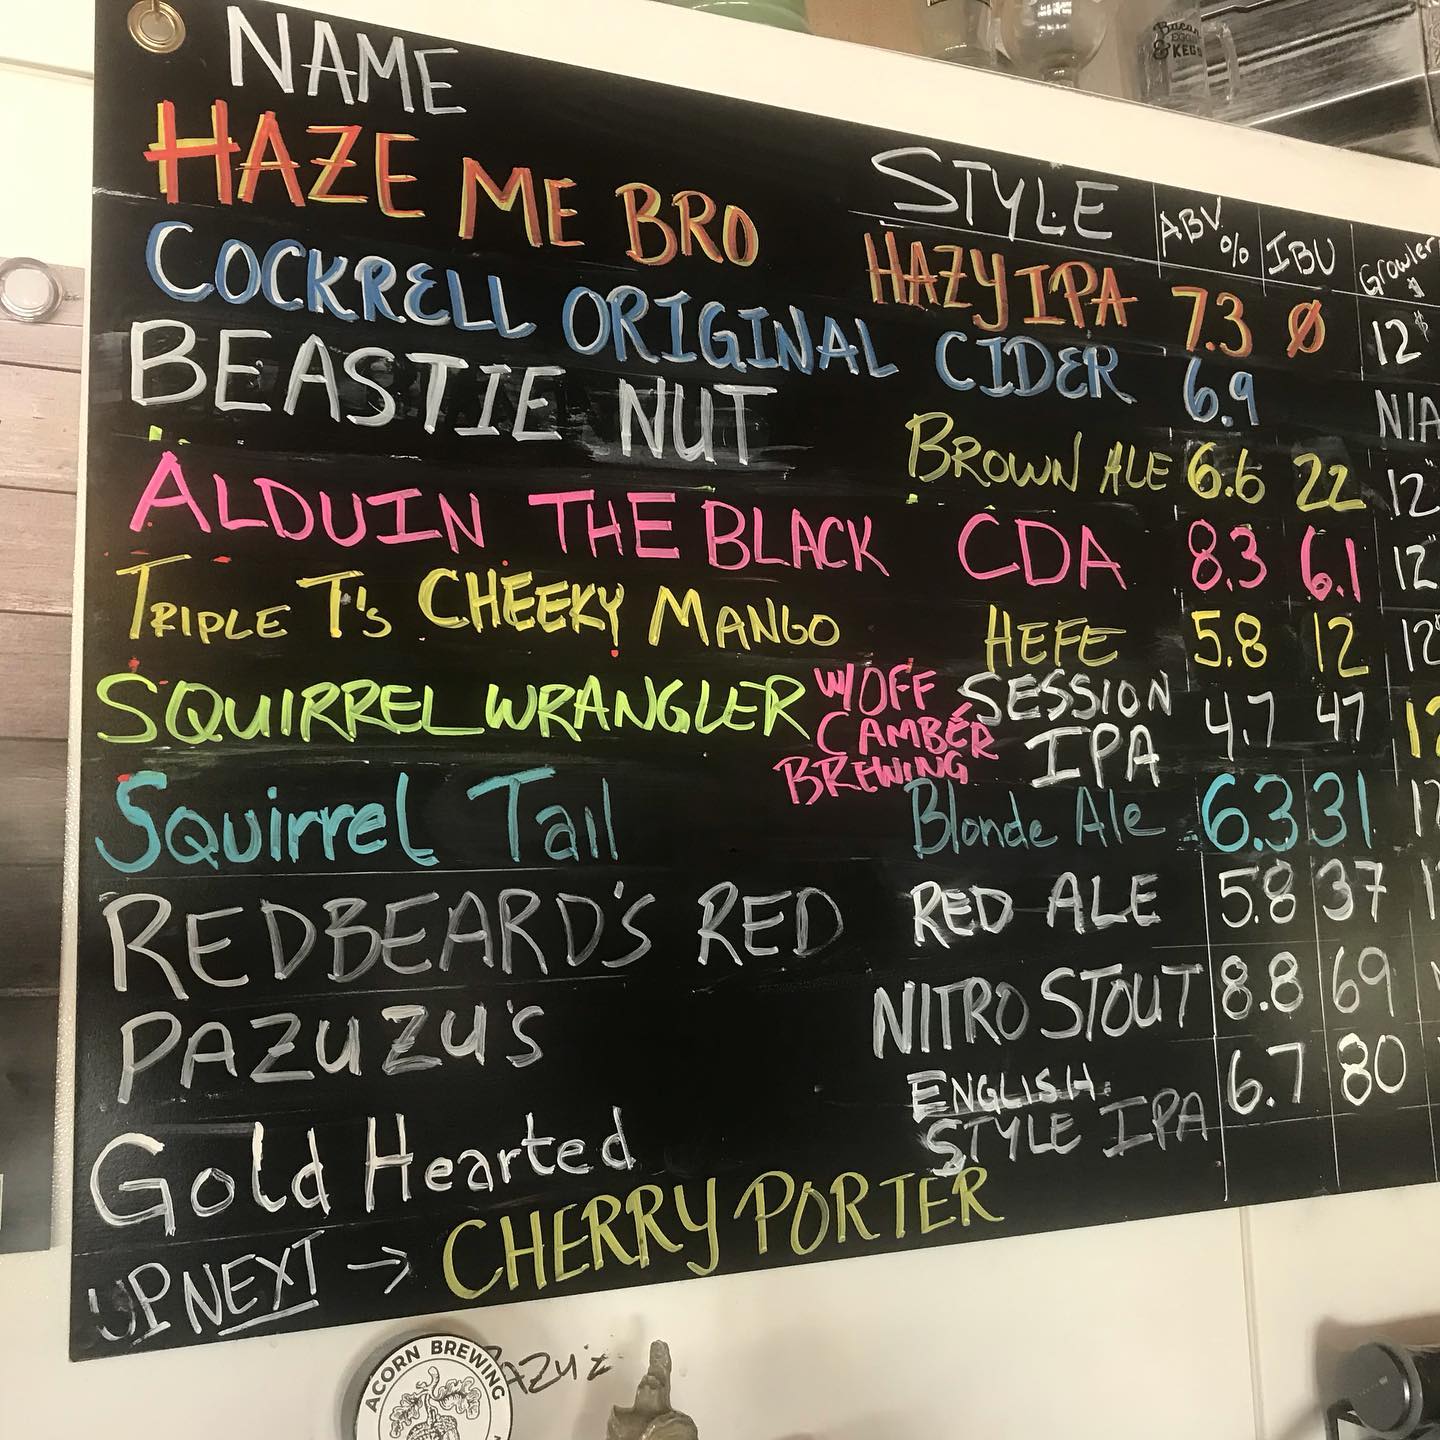 NAME STYLE ABV % IBU Growler $
HAZE ME BRO HAZY IPA 7.3 Ø 12$
COCKRELL ORIGINAL CIDER 6.9 N/A
BEASTIE NUT BROWN ALE 6.6 22 12
ALDUIN THE BLACK CDA 8.3 6.1 12
TRIPLE T's CHEEKY MANGO HEFE 5.8 12 12
SQUIRREL WRANGLER W/OFF CAMBÉR BREWING SESSION IPA 4.7 47
Squirrel Tail Blonde Ale 6.3 31
REDBEARD'S RED RED ALE 5.8 37
PAZUZU'S NITRO STOUT 8.8 69
Gold Hearted ENGLISH STYLE IPA 6.7 80
UP NEXT → CHERRY PORTER
Bacon
EGGS
& KEGS
ACORN BREWING